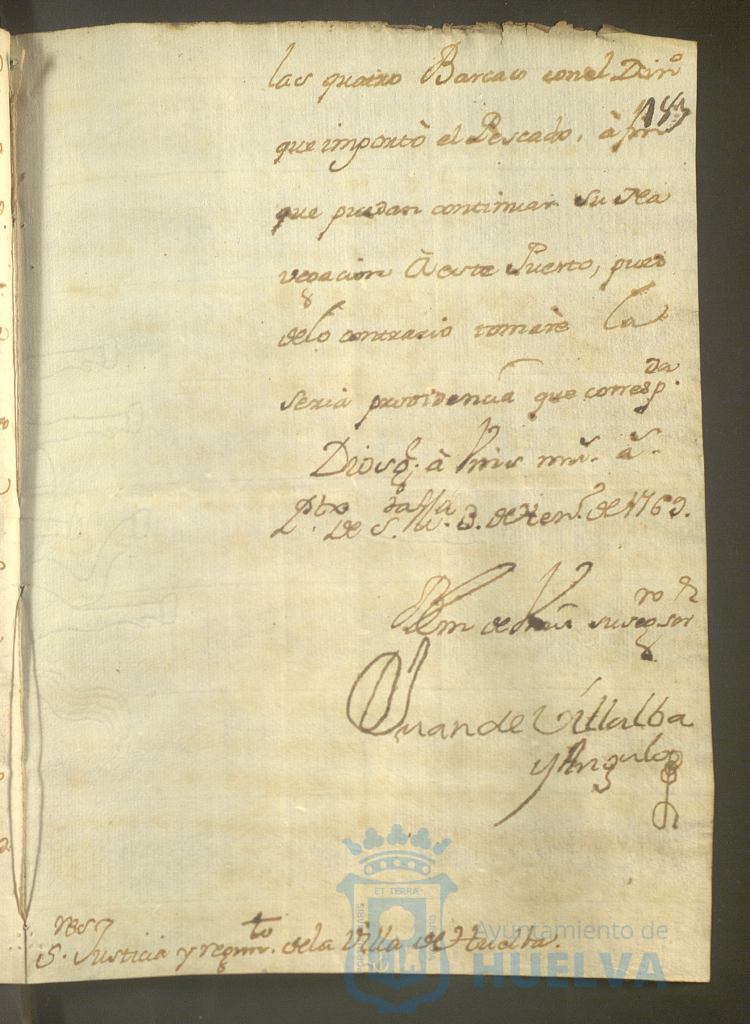 las quatro Barcas con el Dinº
que importò el Pescado, à fin
que puedan continuar su Na
vegacion à este Puerto, pues
delo contrario tomarè la
seria providencia que corresp.da
Dios g. à Vms ms. as.
Pto de S.ta M.a 3. de de 1769.
Blm de Vms su seg.ro ser.or
Juan de Villalba
y Angulo
res
S. Justicia y regim.to dela Villa de Huelba.
ET TERRÆ
Ayuntamiento de
HUELVA